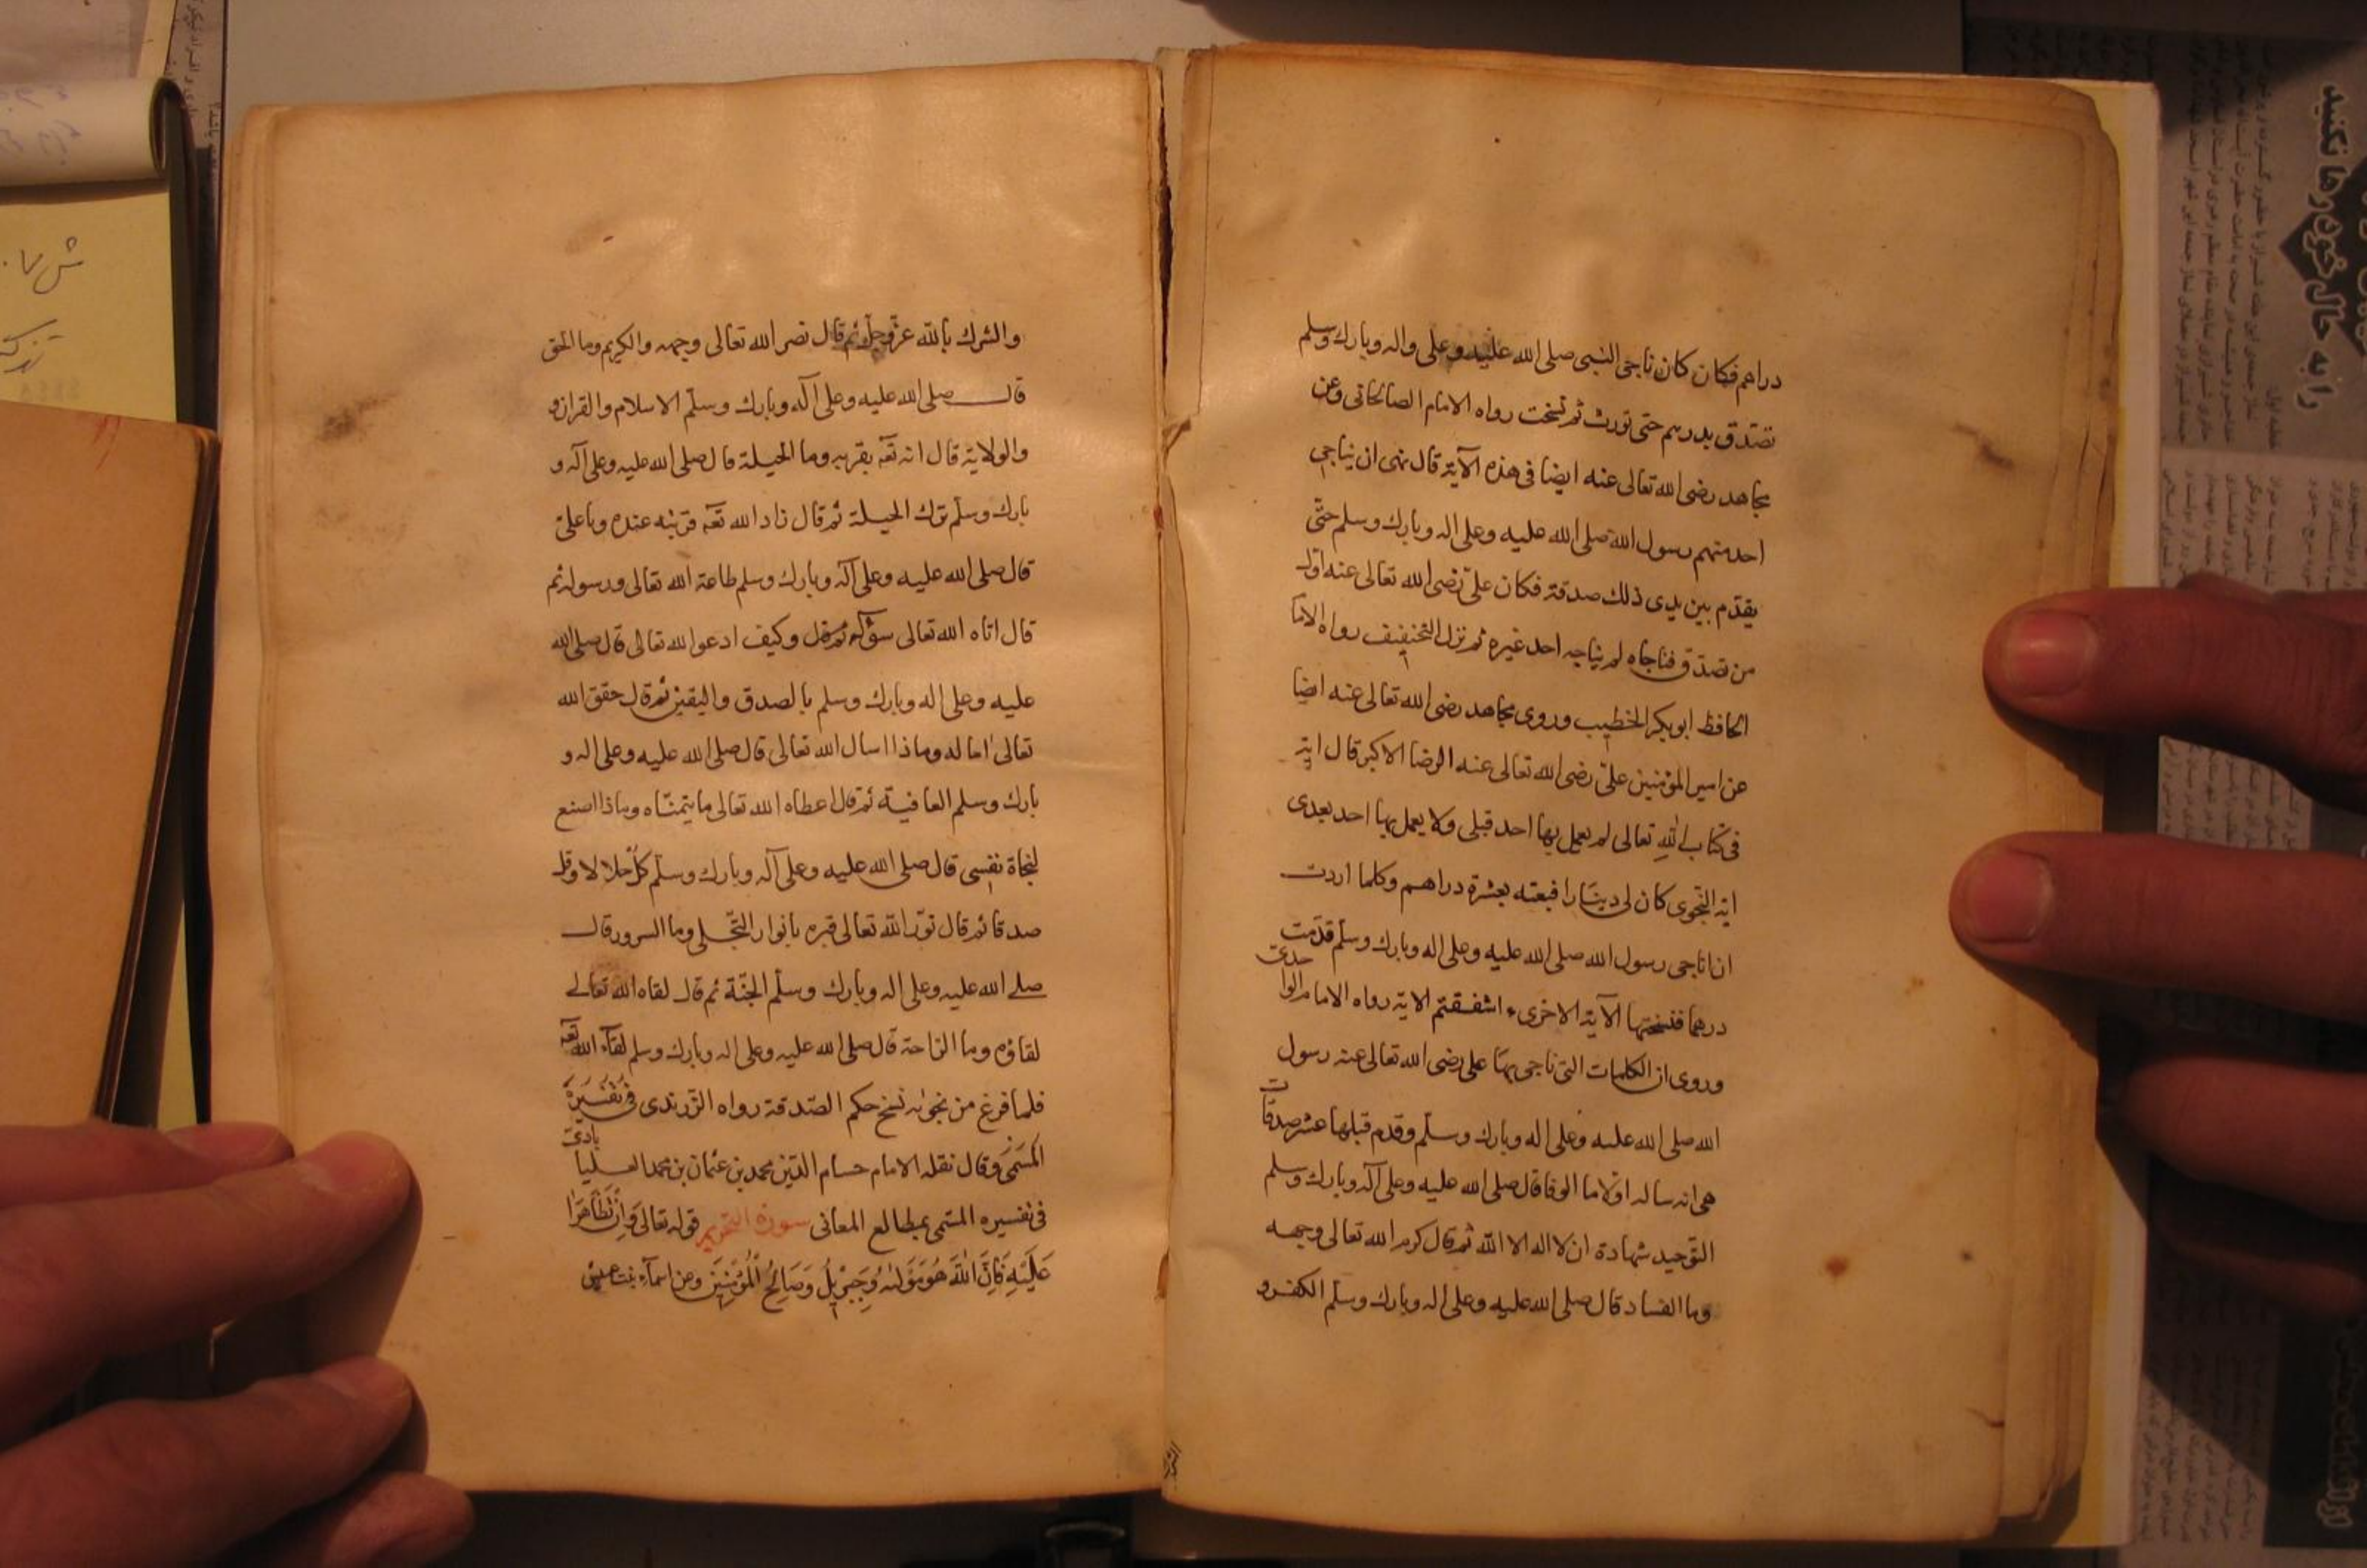 دراهم فكان كان ناجى النبى صلى الله عليه وعلى واله وبارك وسلم
تصدق بدرهم حتى ثم نسخت رواه الامام الصالحانى وعن
مجاهد رضى الله تعالى عنه ايضا فى هذه الآية قال نهى ان يناجى
احد منهم رسول الله صلى الله عليه وعلى اله وبارك وسلم حتّى
يقدّم بين يدى ذلك صدقة فكان علىّ رضى الله تعالى عنه اول
من تصدّق فناجاه لم يناجه احد غيره ثم نزل التخفيف رواه الاما
الحافظ ابو بكر الخطيب وروى مجاهد رضى الله تعالى عنه ايضا
عن امير المؤمنين علىّ رضى الله تعالى عنه الرضا الاكبر قال اية
فى كتاب الله تعالى لم يعمل بها احد قبلى ولا يعمل بها احد بعدى
اية النجوى كان لى دينارا فبعته بعشرة دراهم وكلما اردت
ان اناجى رسول الله صلى الله عليه وعلى اله وبارك وسلّم قدّمت
درهما فنسختها الآية الاخرى ءاشفقتم الاية رواه الامام الوا
حدىّ
وروى ان الكلمات التى ناجى بها على رضى الله تعالى عنه رسول
الله صلى الله عليه وعلى اله وبارك وسلّم وقدم قبلها عشر صدقات
هى انه ساله اولا ما الوفا قال صلى الله عليه وعلى آله وبارك وسلم
التّوحيد شهادة ان لا اله الا الله ثم قال كرم الله تعالى وجهه
وما الفساد قال صلى الله عليه وعلى اله وبارك وسلّم الكفر و
والشرك بالله عزّ وجلّ ثم قال نصر الله تعالى وجهه والكريم وما الحق
قال صلى الله عليه وعلى آله وبارك وسلّم الاسلام والقران و
والولاية قال انه تعه بقربه وما الحيلة قال صلى الله عليه وعلى آله و
بارك وسلّم ترك الحيلة ثم قال زاد الله تعه قربته عنده وما علىّ
قال صلى الله عليه وعلى آله وبارك وسلم طاعة الله تعالى ورسوله ثم
قال اتاه الله تعالى سؤاله ثم قال وكيف ادعو الله تعالى قال صلى الله
عليه وعلى اله وبارك وسلم بالصدق واليقين ثم قال حقق الله
تعالى اماله وماذا اسال الله تعالى قال صلى الله عليه وعلى اله و
بارك وسلم العافية ثم قال اعطاه الله تعالى ما يتمنّاه وماذا اصنع
لنجاة نفسى قال صلى الله عليه وعلى آله وبارك وسلّم كل حلالا وقل
صدقا ثم قال نوّر الله تعالى قبره بانوار التّجلى وما السرور قال
صلى الله عليه وعلى اله وبارك وسلّم الجنّة ثم قال لقاه الله تعالى
لقاؤه وما الرّاحة قال صلى الله عليه وعلى اله وبارك وسلم لقآء الله تعه
فلما فرغ من نجواه نسخ حكم الصّدقة رواه الزّرندى فى تفسيره
المسمى وقال نقله الامام حسام الدّين محمد بن عثمان بن محمد العليا
بادىّ
فى تفسيره المسّمى بمطالع المعانى سورة التحريم قوله تعالى وَاِنْ تَظَاهَرَا
عَلَيْهِ فَاِنَّ اللهَ هُوَ مَوْلٰهُ وَجِبْرِيلُ وَصَالِحُ الْمُؤْمِنِيْنَ وعن اسمآء بنت عميس
را به حال خود رها نكنيد